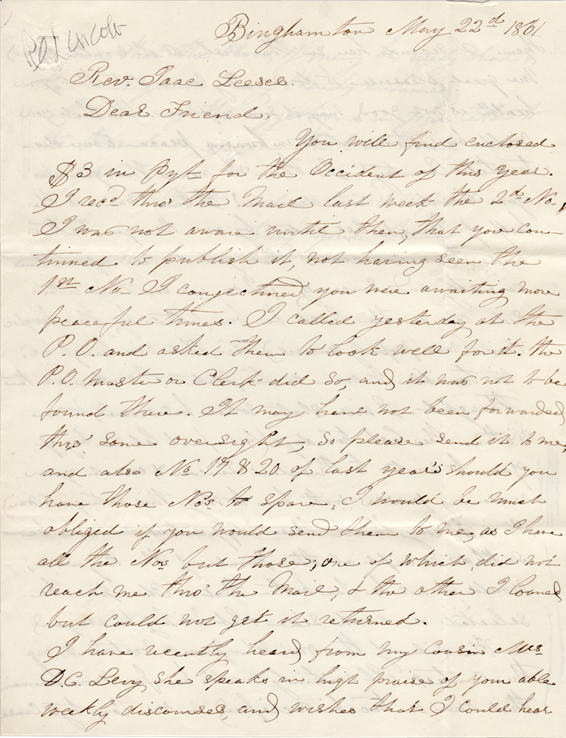 Binghamton May 22d 1861
Rev. Isaac Leeser.
Dear Friend,
You will find enclosed
$3 in Pyt for the Occident of this year.
I recd thro' the Mail last week the 2d No.
I was not aware until then, that you con-
tinued to publish it, not having seen the
1st No I conjectured you were awaiting more
peaceful times. I called yesterday at the
P.O. and asked them to look well for it. the
P.O. Master or Clerk did so, and it was not to be
found there. It may have not been forwarded
thro' some oversight, so please send it to me,
and also No 19 & 20 of last year's should you
have those Nos to spare, I would be much
obliged if you would send them to me, as I have
all the Nos but those; one of which did not
reach me thro' the Mail, & the other I loaned
but could not get it returned.
I have recently heard from my Cousin Mrs
D.C. Levy, she speaks in high praise of your able
weekly discourses, and wishes that I could hear